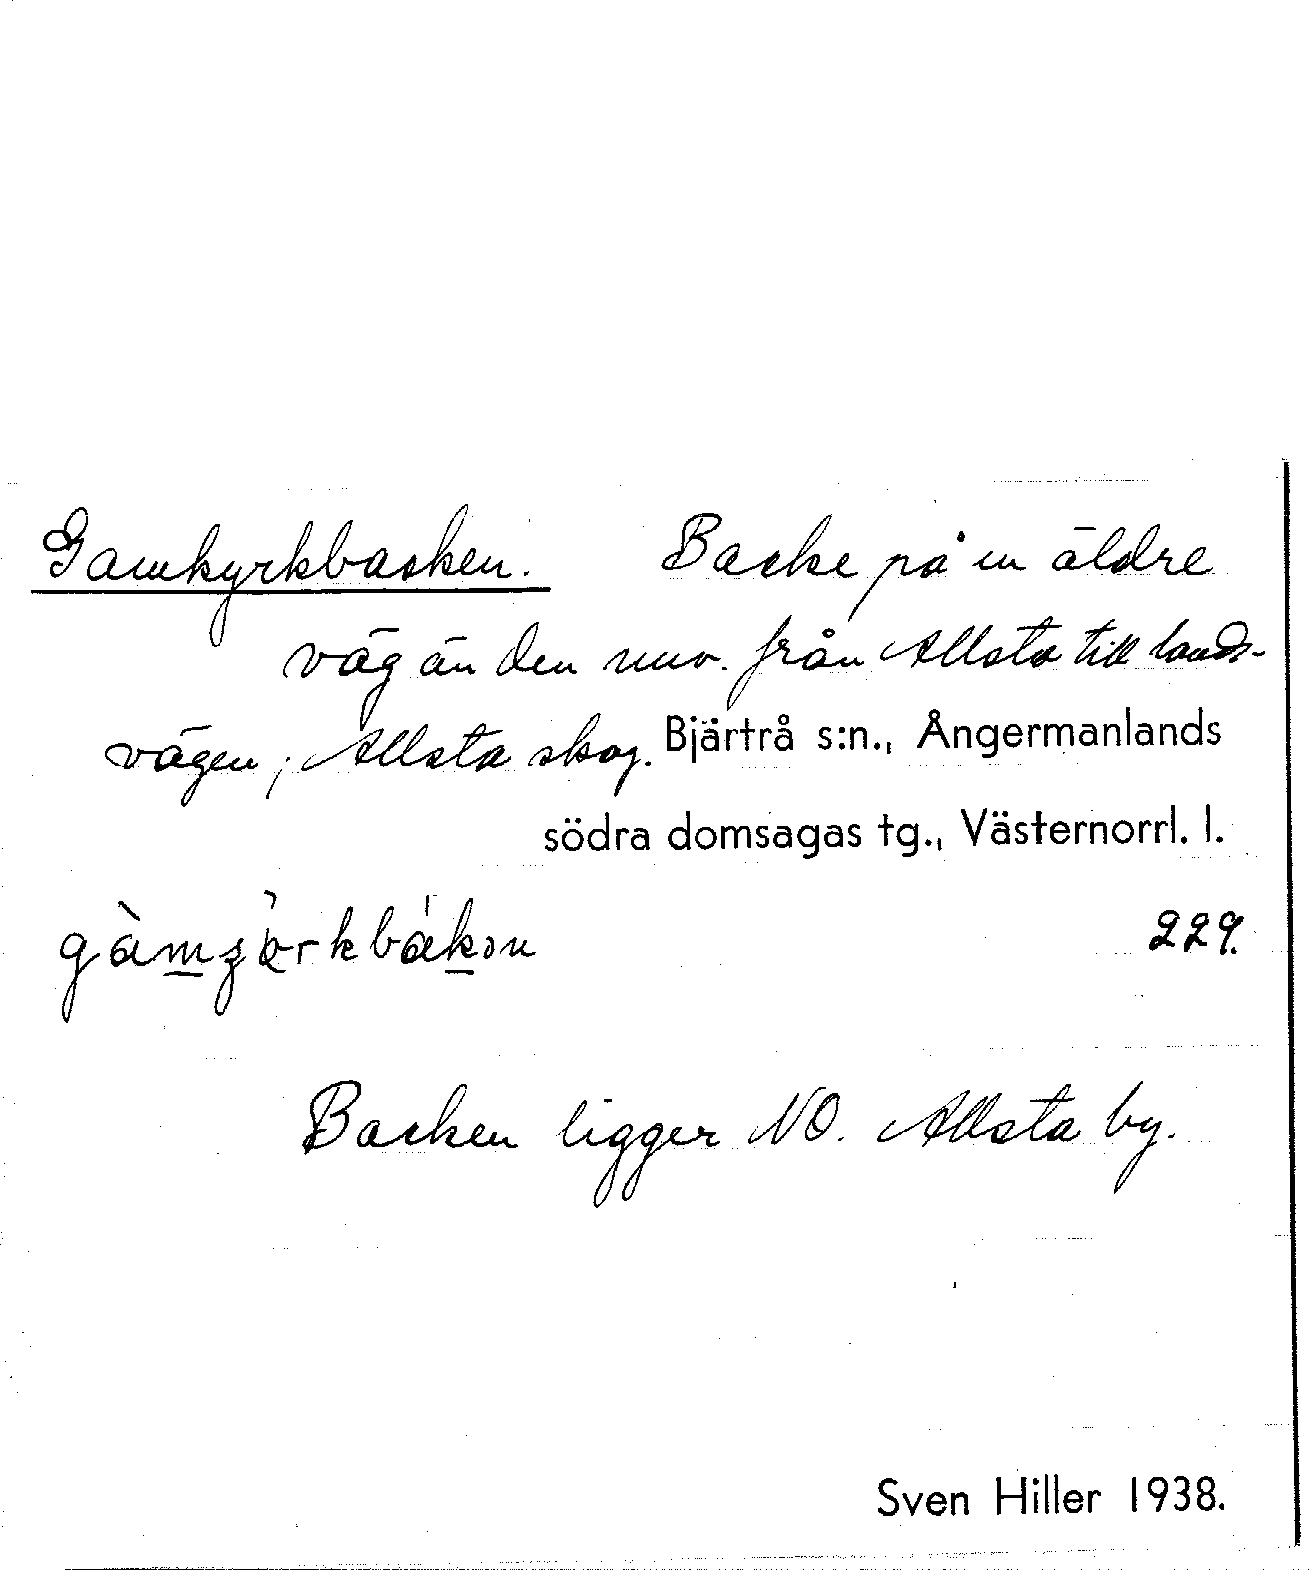 Gamkyrkbacken. Backe på en äldre
väg än den nuv. från Allsta till lands-
vägen, Allsta skog. Bjärtrå s:n., Ångermanlands
södra domsagas tg., Västernorrl. l.
229.
Backen ligger NO. Allsta by.
Sven Hiller 1938.